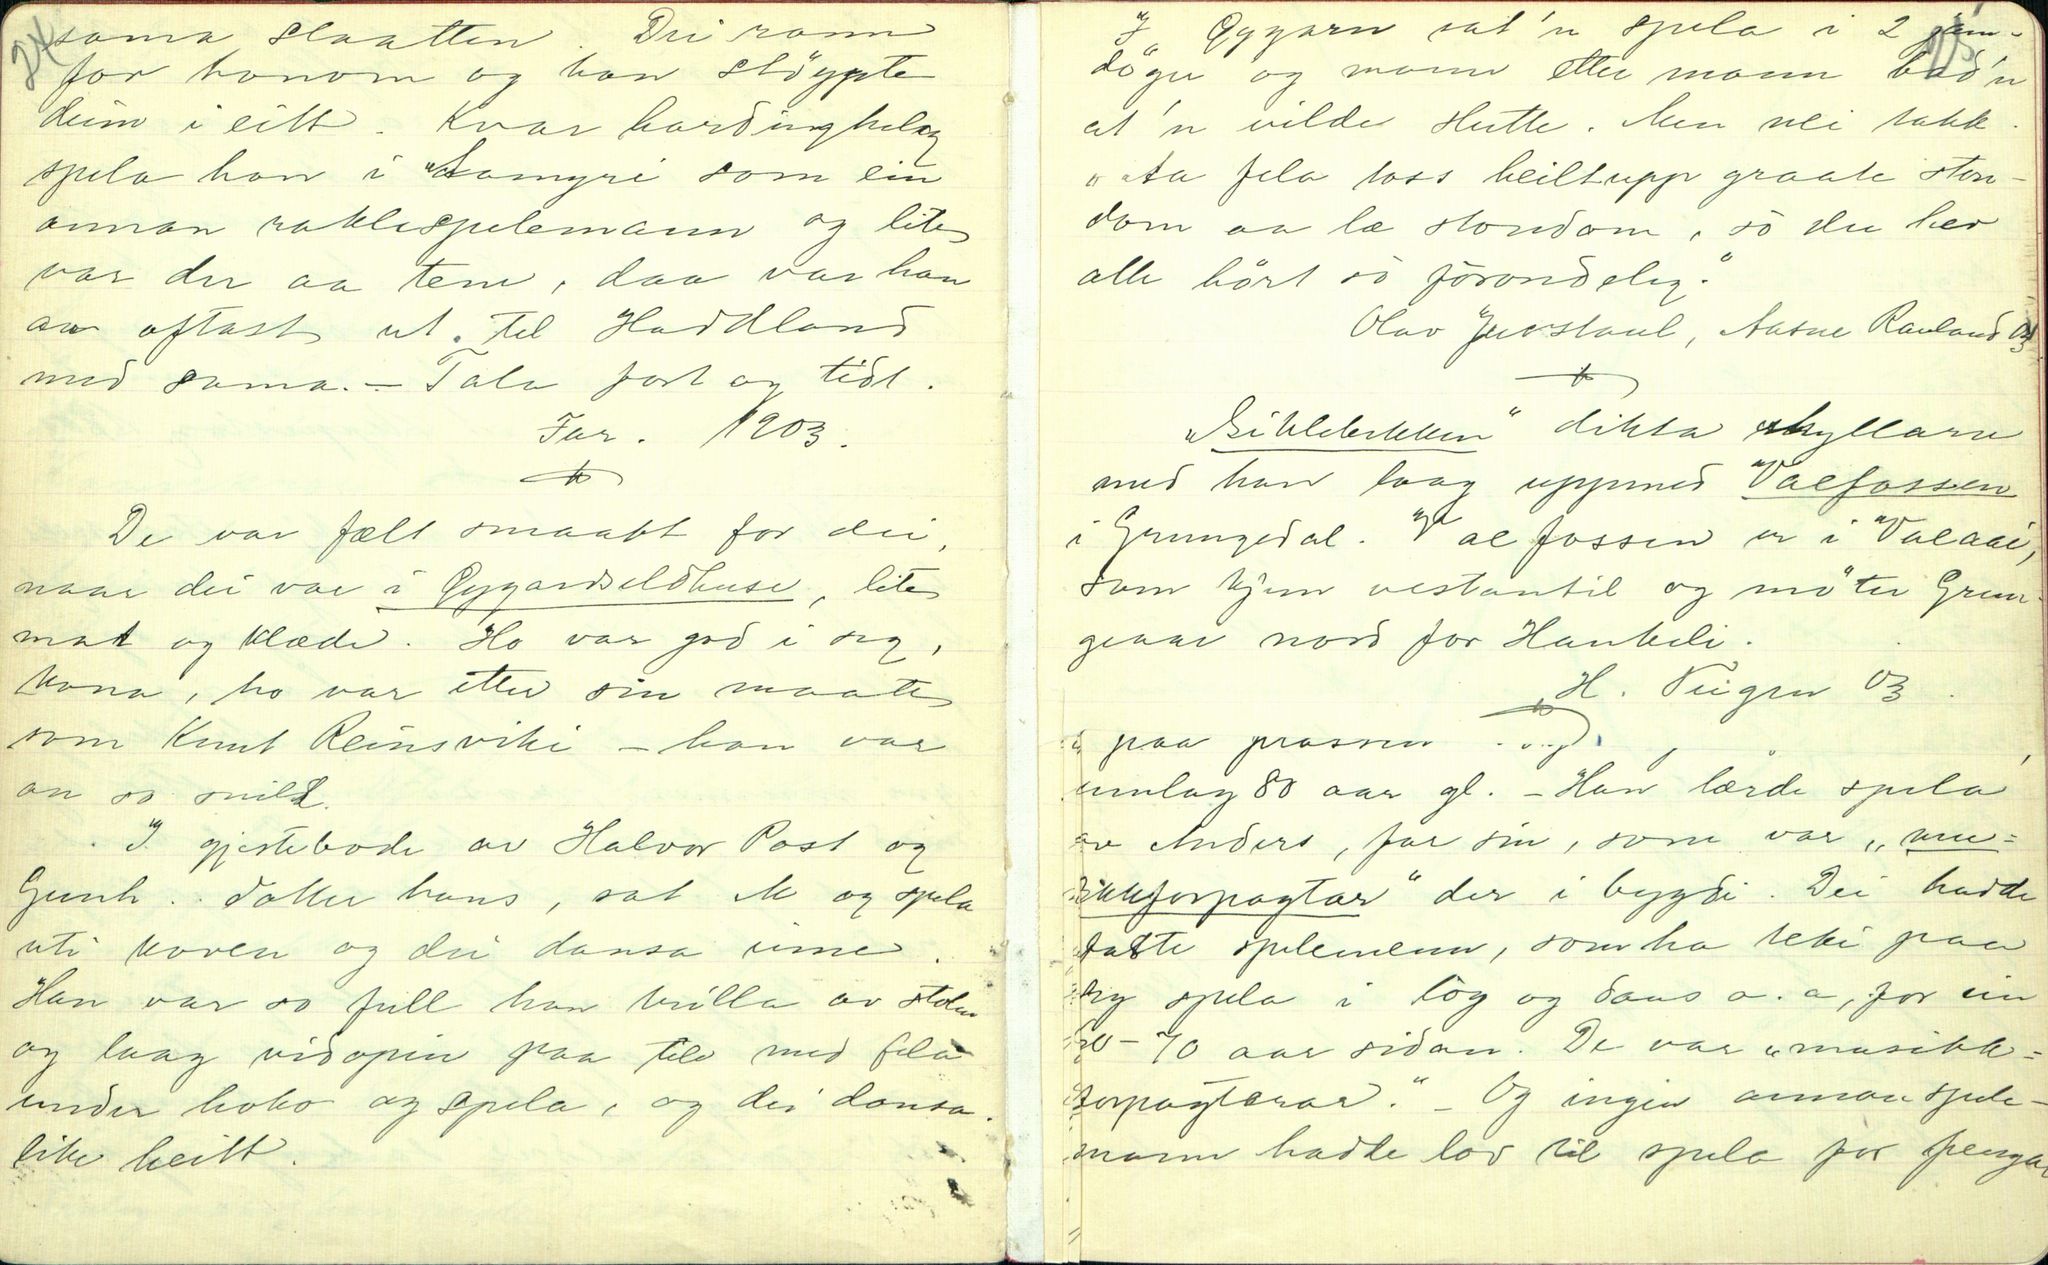 24
sama slaatten. Dei rann
for honom og han støypte
deim i eitt. Kvar hardinghelg
spela han i "Lamyri som ein
annan raklespelemann og lite
var der aa tene, daa var han
an oftast ut. til Haddland
med sama. — Tala fort og tidt.
Far. 1903.
De var fælt smaatt for dei,
naar dei var i Gygardseldhuse, lite
mat og klæde. Ho var god i seg,
kona, ho var etter sin maate
som Knut Reinsviki — han var
an so snild.
I gjestebode av Halvor Post og
Gunh. dotter hans, sat M og spela
uti koven og dei dansa inne.
Han var so full han trilla av stolen
og laag vidopin paa tile med fela
under hoko og spela, og dei dansa
like heitt.
25
I Gygarn sat'n spela i 2 jam-
døger og mann etter mann bad'n
at'n vilde slutte. Men nei takk.
"Aa fela toss heiltupp graate ston-
dom aa læ stondom, so du her
alle hørt so forondeleg."
Olav Juvstaul, Aasne Rauland 03
"Siklebekken" dikta Myllaren
med han laag uppmed Vaefossen
i Grungedal. Vaefossen er i Vaeaai,
som kjem vestantil og møter Grun-
geaai nord for Haukeli.
H. Teigen 03.
paa prassen
umlag 80 aar gl. — Han lærde spela
av Anders, far sin, som var "mu-
sikkforpagtar" der i bygdi. Dei hadde
faste spelemenn, som ha teki paa
seg spela i lög og dans o. a, for ein
60-70 aar sidan. De var "musikk-
forpagterar." — Og ingen annan spele-
mann hadde lov til spela for pengar